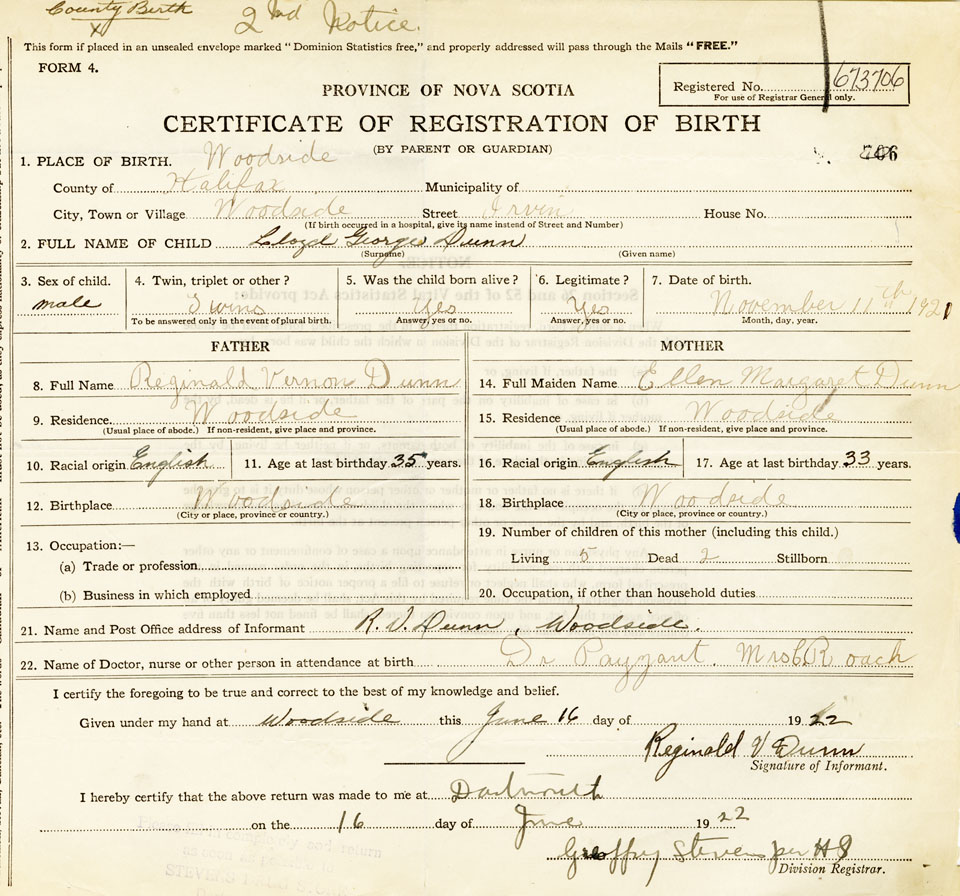 County Birth
X
2nd Notice.
This form if placed in an unsealed envelope marked "Dominion Statistics free," and properly addressed will pass through the Mails "FREE."
FORM 4.
PROVINCE OF NOVA SCOTIA
Registered No. 673706
For use of Registrar General only.
CERTIFICATE OF REGISTRATION OF BIRTH
(BY PARENT OR GUARDIAN)
706
1. PLACE OF BIRTH. Woodside
County of Halifax Municipality of
City, Town or Village Woodside Street Irvin House No.
(If birth occurred in a hospital, give its name instead of Street and Number)
2. FULL NAME OF CHILD Lloyd George Dunn
(Surname) (Given name)
3. Sex of child. 4. Twin, triplet or other? 5. Was the child born alive? 6. Legitimate? 7. Date of birth.
male Twins Yes Yes November 11th 1921
To be answered only in the event of plural birth. Answer, yes or no. Answer, yes or no. Month, day, year.
FATHER MOTHER
8. Full Name Reginald Vernon Dunn 14. Full Maiden Name Ellen Margaret Dunn
9. Residence Woodside 15. Residence Woodside
(Usual place of abode.) If non-resident, give place and province. (Usual place of abode.) If non-resident, give place and province.
10. Racial origin English 11. Age at last birthday 35 years. 16. Racial origin English 17. Age at last birthday 33 years.
12. Birthplace Woodside 18. Birthplace Woodside
(City or place, province or country.) (City or place, province or country.)
13. Occupation:— 19. Number of children of this mother (including this child.)
(a) Trade or profession Living 5 Dead 2 Stillborn
(b) Business in which employed 20. Occupation, if other than household duties
21. Name and Post Office address of Informant R. V. Dunn, Woodside.
22. Name of Doctor, nurse or other person in attendance at birth Dr Payzant. Mrs C. Roach
I certify the foregoing to be true and correct to the best of my knowledge and belief.
Given under my hand at Woodside this June 16 day of 1922
Reginald V Dunn
Signature of Informant.
I hereby certify that the above return was made to me at Dartmouth
on the 16 day of June 1922
Geoffry Stevens per HS
Division Registrar.